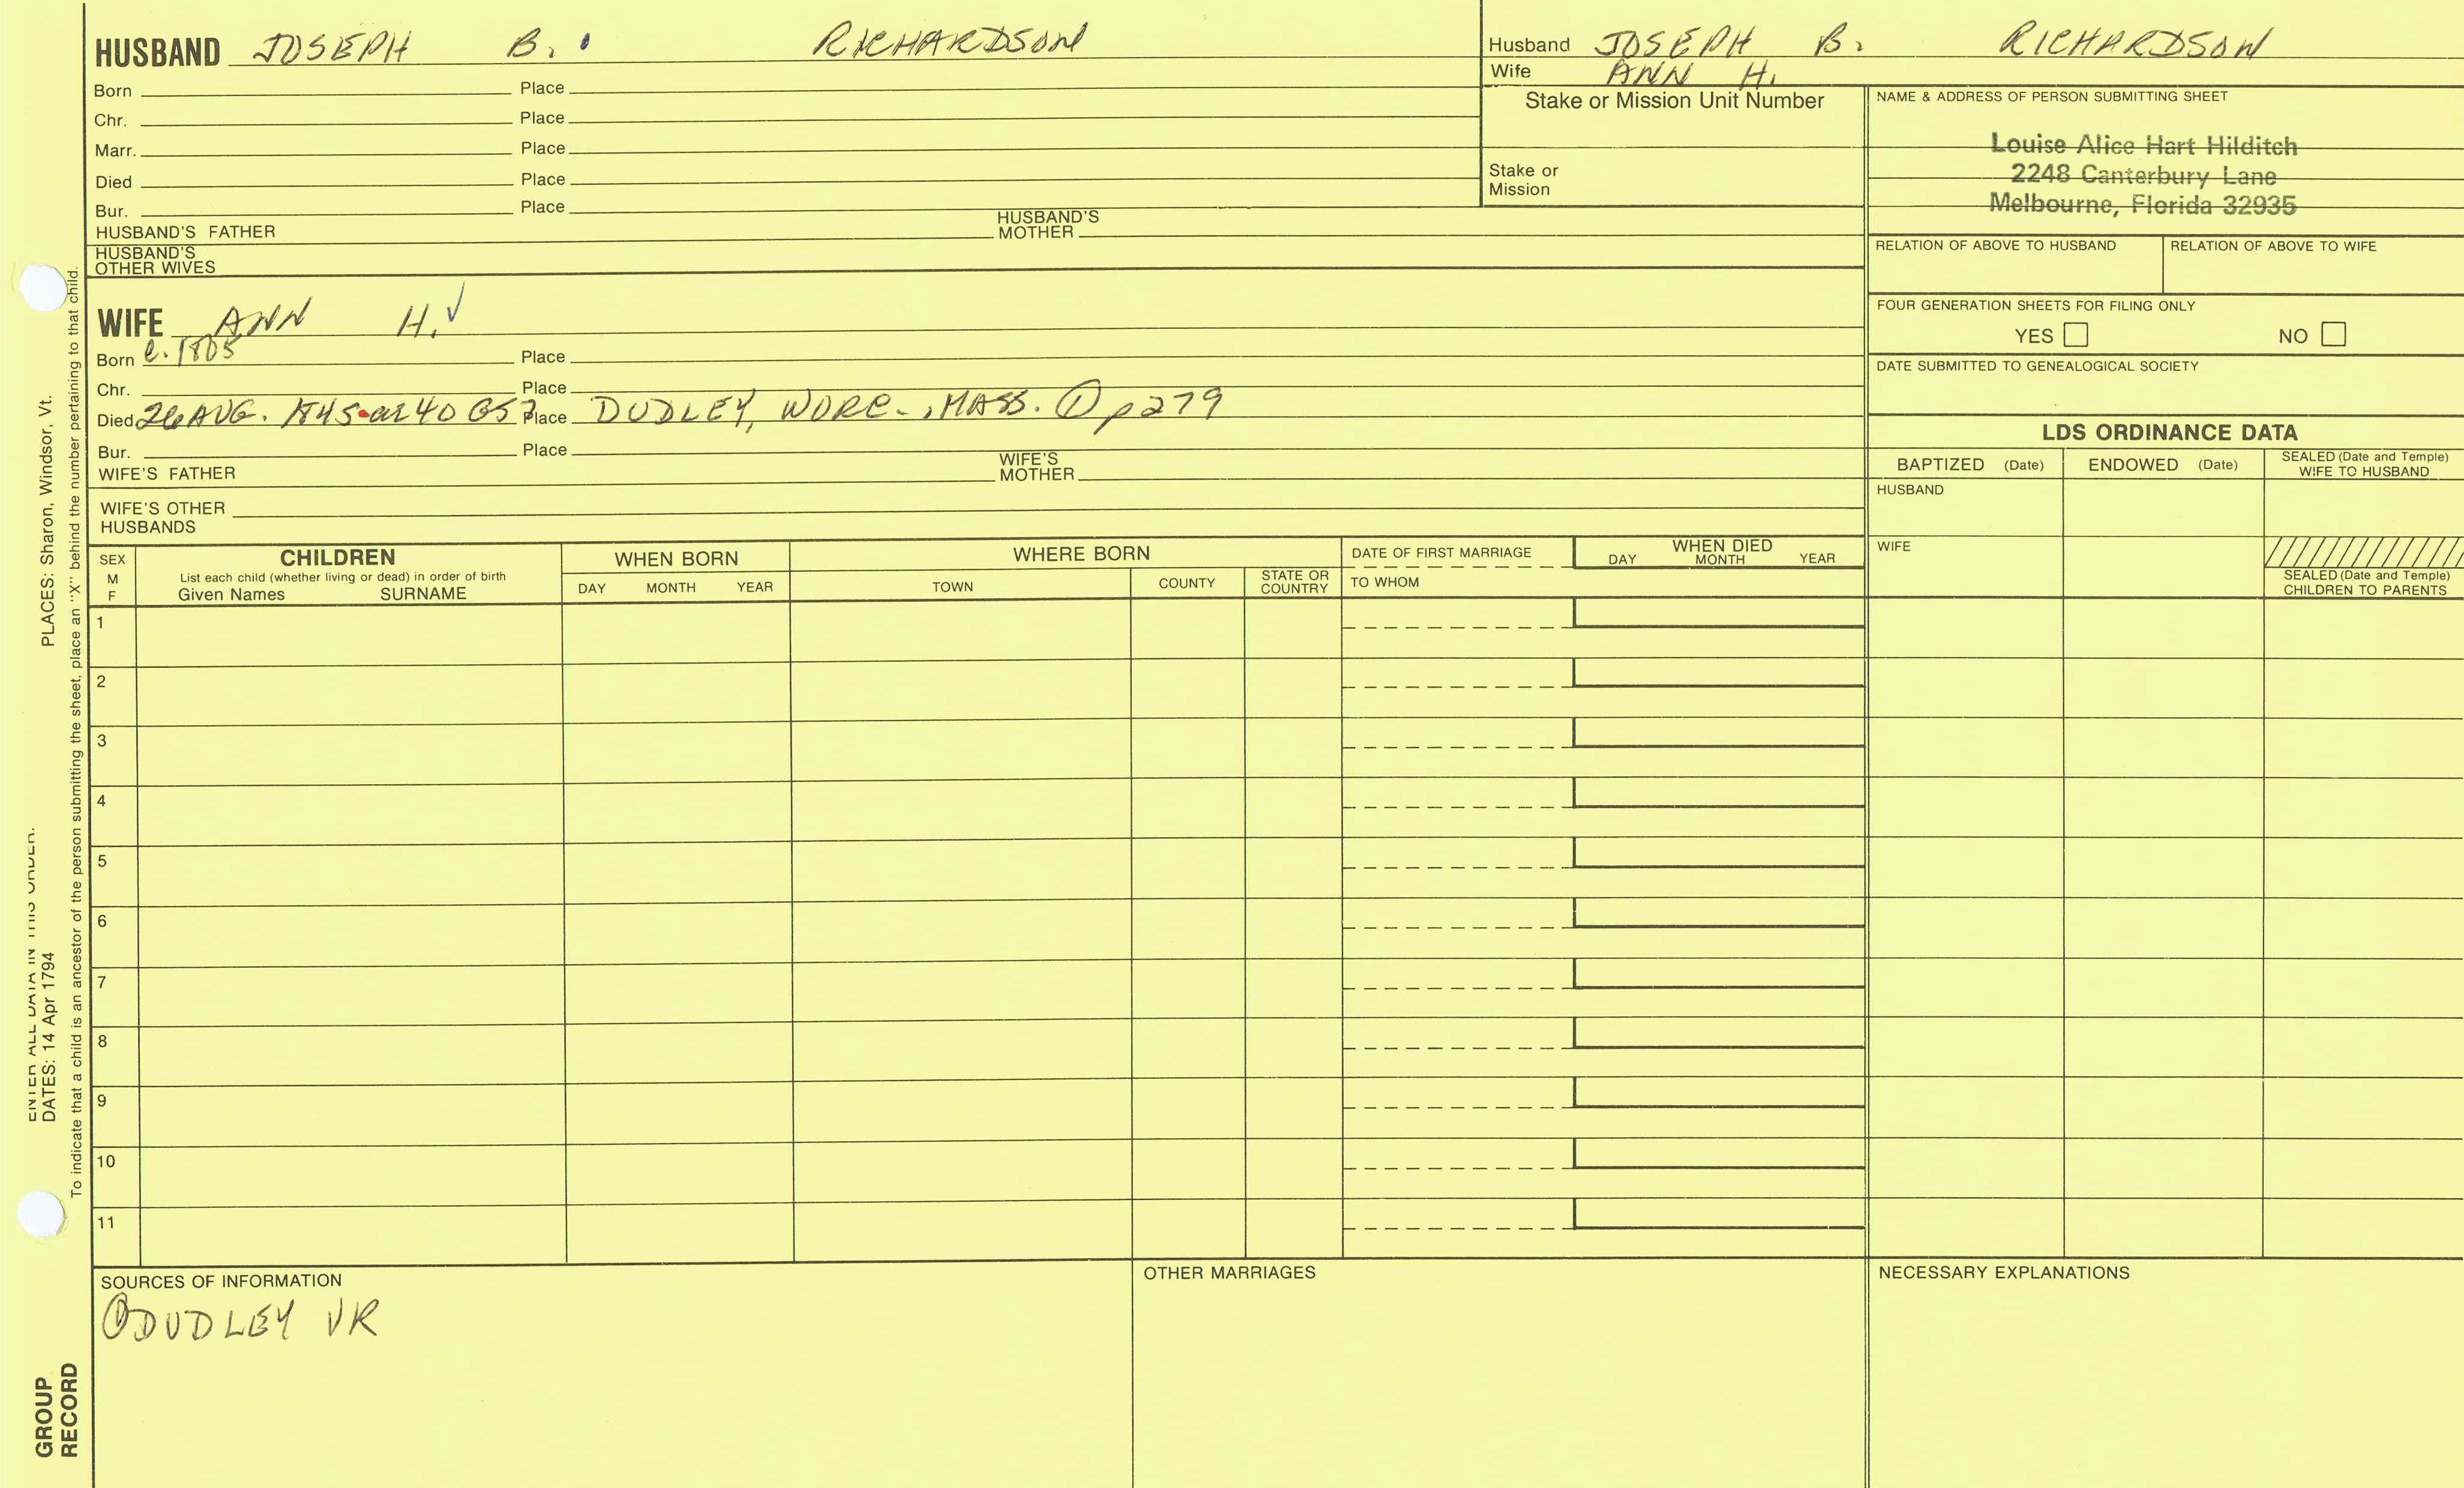 HUSBAND JOSEPH B. RICHARDSON
Born Place
Chr. Place
Marr. Place
Died Place
Bur. Place
HUSBAND'S FATHER HUSBAND'S MOTHER
HUSBAND'S OTHER WIVES
WIFE ANN H. ✓
Born c. 1805 Place
Chr. Place
Died 26 AUG. 1845 ae 40 GS? Place DUDLEY, WORC., MASS. ① p279
Bur. Place
WIFE'S FATHER WIFE'S MOTHER
WIFE'S OTHER HUSBANDS
Husband JOSEPH B. RICHARDSON
Wife ANN H.
Stake or Mission Unit Number
Stake or Mission
NAME & ADDRESS OF PERSON SUBMITTING SHEET
Louise Alice Hart Hilditch
2248 Canterbury Lane
Melbourne, Florida 32935
RELATION OF ABOVE TO HUSBAND RELATION OF ABOVE TO WIFE
FOUR GENERATION SHEETS FOR FILING ONLY
YES NO
DATE SUBMITTED TO GENEALOGICAL SOCIETY
LDS ORDINANCE DATA
BAPTIZED (Date) ENDOWED (Date) SEALED (Date and Temple) WIFE TO HUSBAND
HUSBAND
WIFE
SEALED (Date and Temple) CHILDREN TO PARENTS
SEX M F
CHILDREN
List each child (whether living or dead) in order of birth
Given Names SURNAME
WHEN BORN
DAY MONTH YEAR
WHERE BORN
TOWN COUNTY STATE OR COUNTRY
DATE OF FIRST MARRIAGE
TO WHOM
WHEN DIED
DAY MONTH YEAR
1
2
3
4
5
6
7
8
9
10
11
SOURCES OF INFORMATION
① DUDLEY VR
OTHER MARRIAGES
NECESSARY EXPLANATIONS
ENTER ALL DATA IN THIS ORDER:
DATES: 14 Apr 1794 PLACES: Sharon, Windsor, Vt.
To indicate that a child is an ancestor of the person submitting the sheet, place an "X" behind the number pertaining to that child.
GROUP
RECORD